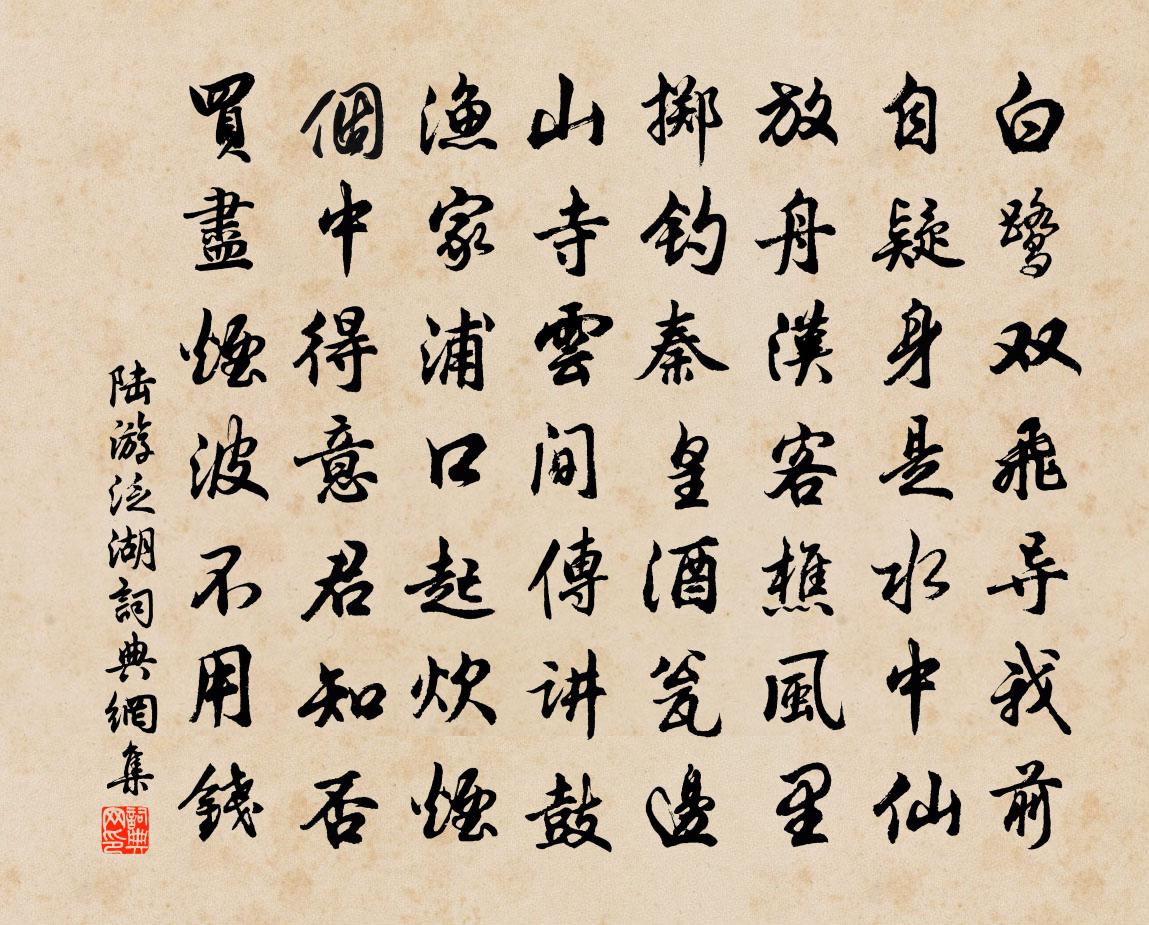 白鹭双飛导我前
自疑身是水中仙
放舟漢客樵風里
掷钓秦皇酒瓮邊
山寺雲間傳讲鼓
漁家浦口起炊煙
個中得意君知否
買盡煙波不用錢
陆游泛湖詞典網集
詞典
网印